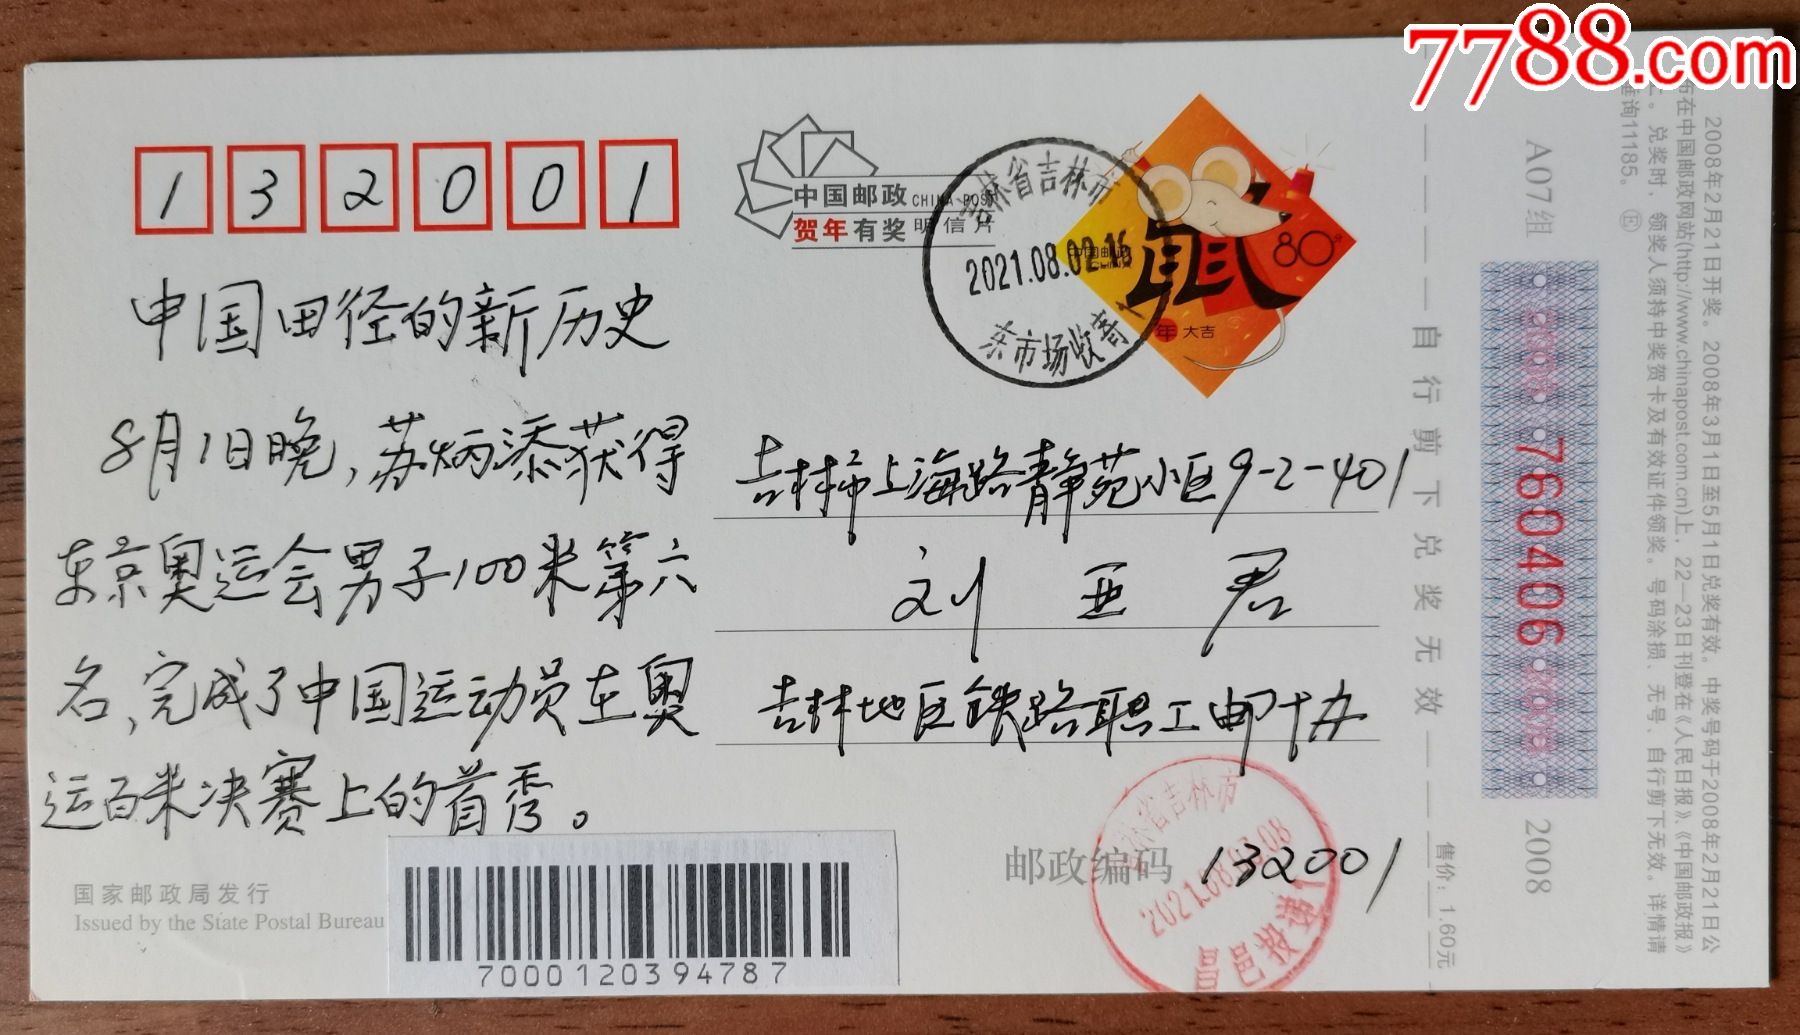 7788.com
132001
中国邮政 CHINA POST
贺年有奖明信片
吉林省吉林市
2021.08.02.16
东市场收寄
中国邮政
CHINA
鼠
80分
年大吉
中国田径的新历史
8月1日晚,苏炳添获得
东京奥运会男子100米第六
名,完成了中国运动员在奥
运百米决赛上的首秀。
吉林市上海路静苑小区9-2-401
刘亚君
吉林地区铁路职工邮协
邮政编码 132001
吉林省吉林市
2021.08.03.08
昌邑投递
国家邮政局发行
Issued by the State Postal Bureau
7000120394787
自行剪下兑奖无效
售价:1.60元
A07组
2008 760406 2008
2008
2008年2月21日开奖。2008年3月1日至5月1日兑奖有效。中奖号码于2008年2月21日公
布在中国邮政网站(http://www.chinapost.com.cn)上,22—23日刊登在《人民日报》、《中国邮政报》
上。兑奖时,领奖人须持中奖贺卡及有效证件领奖。号码涂损、无号、自行剪下无效。详情请
查询11185。